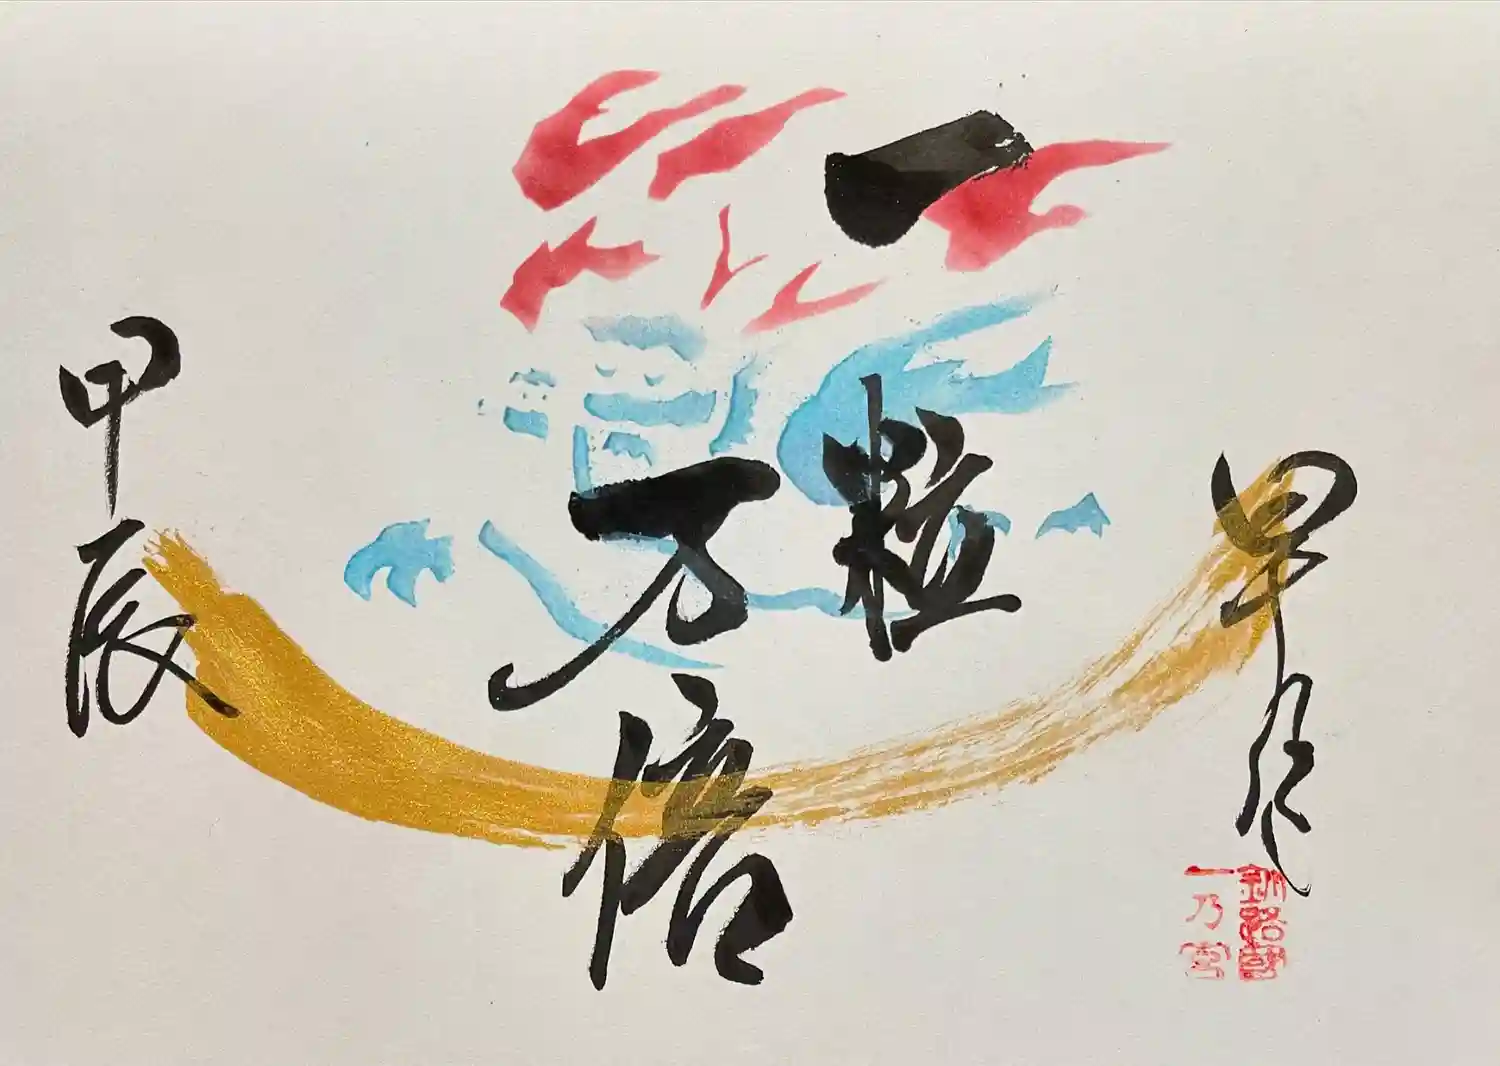 釧路國
一乃宮
一粒
万倍
甲辰